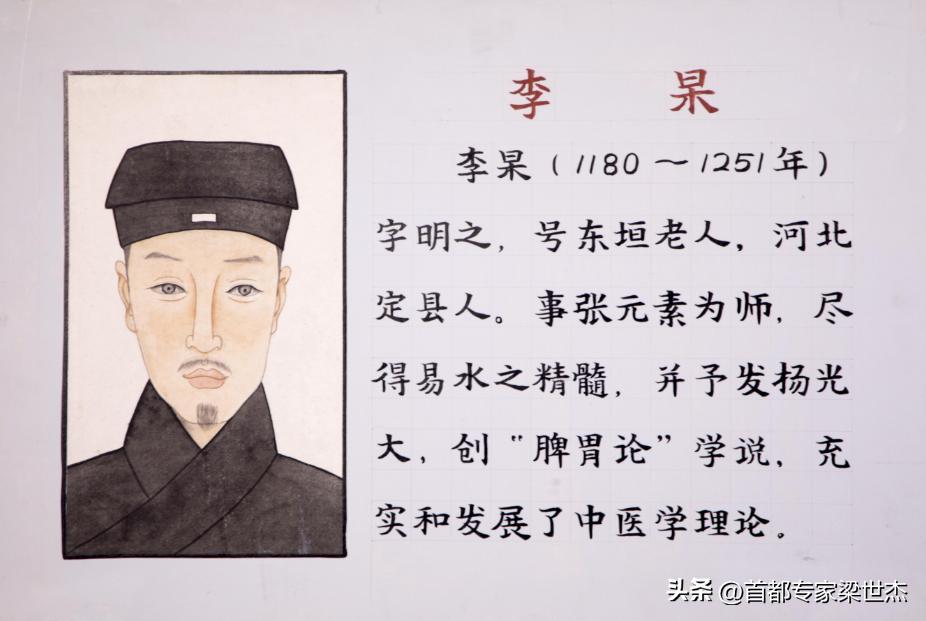 李 杲
李杲(1180~1251年)
字明之,号东垣老人,河北
定县人。事张元素为师,尽
得易水之精髓,并予发扬光
大,创“脾胃论”学说,充
实和发展了中医学理论。
头条 @首都专家梁世杰